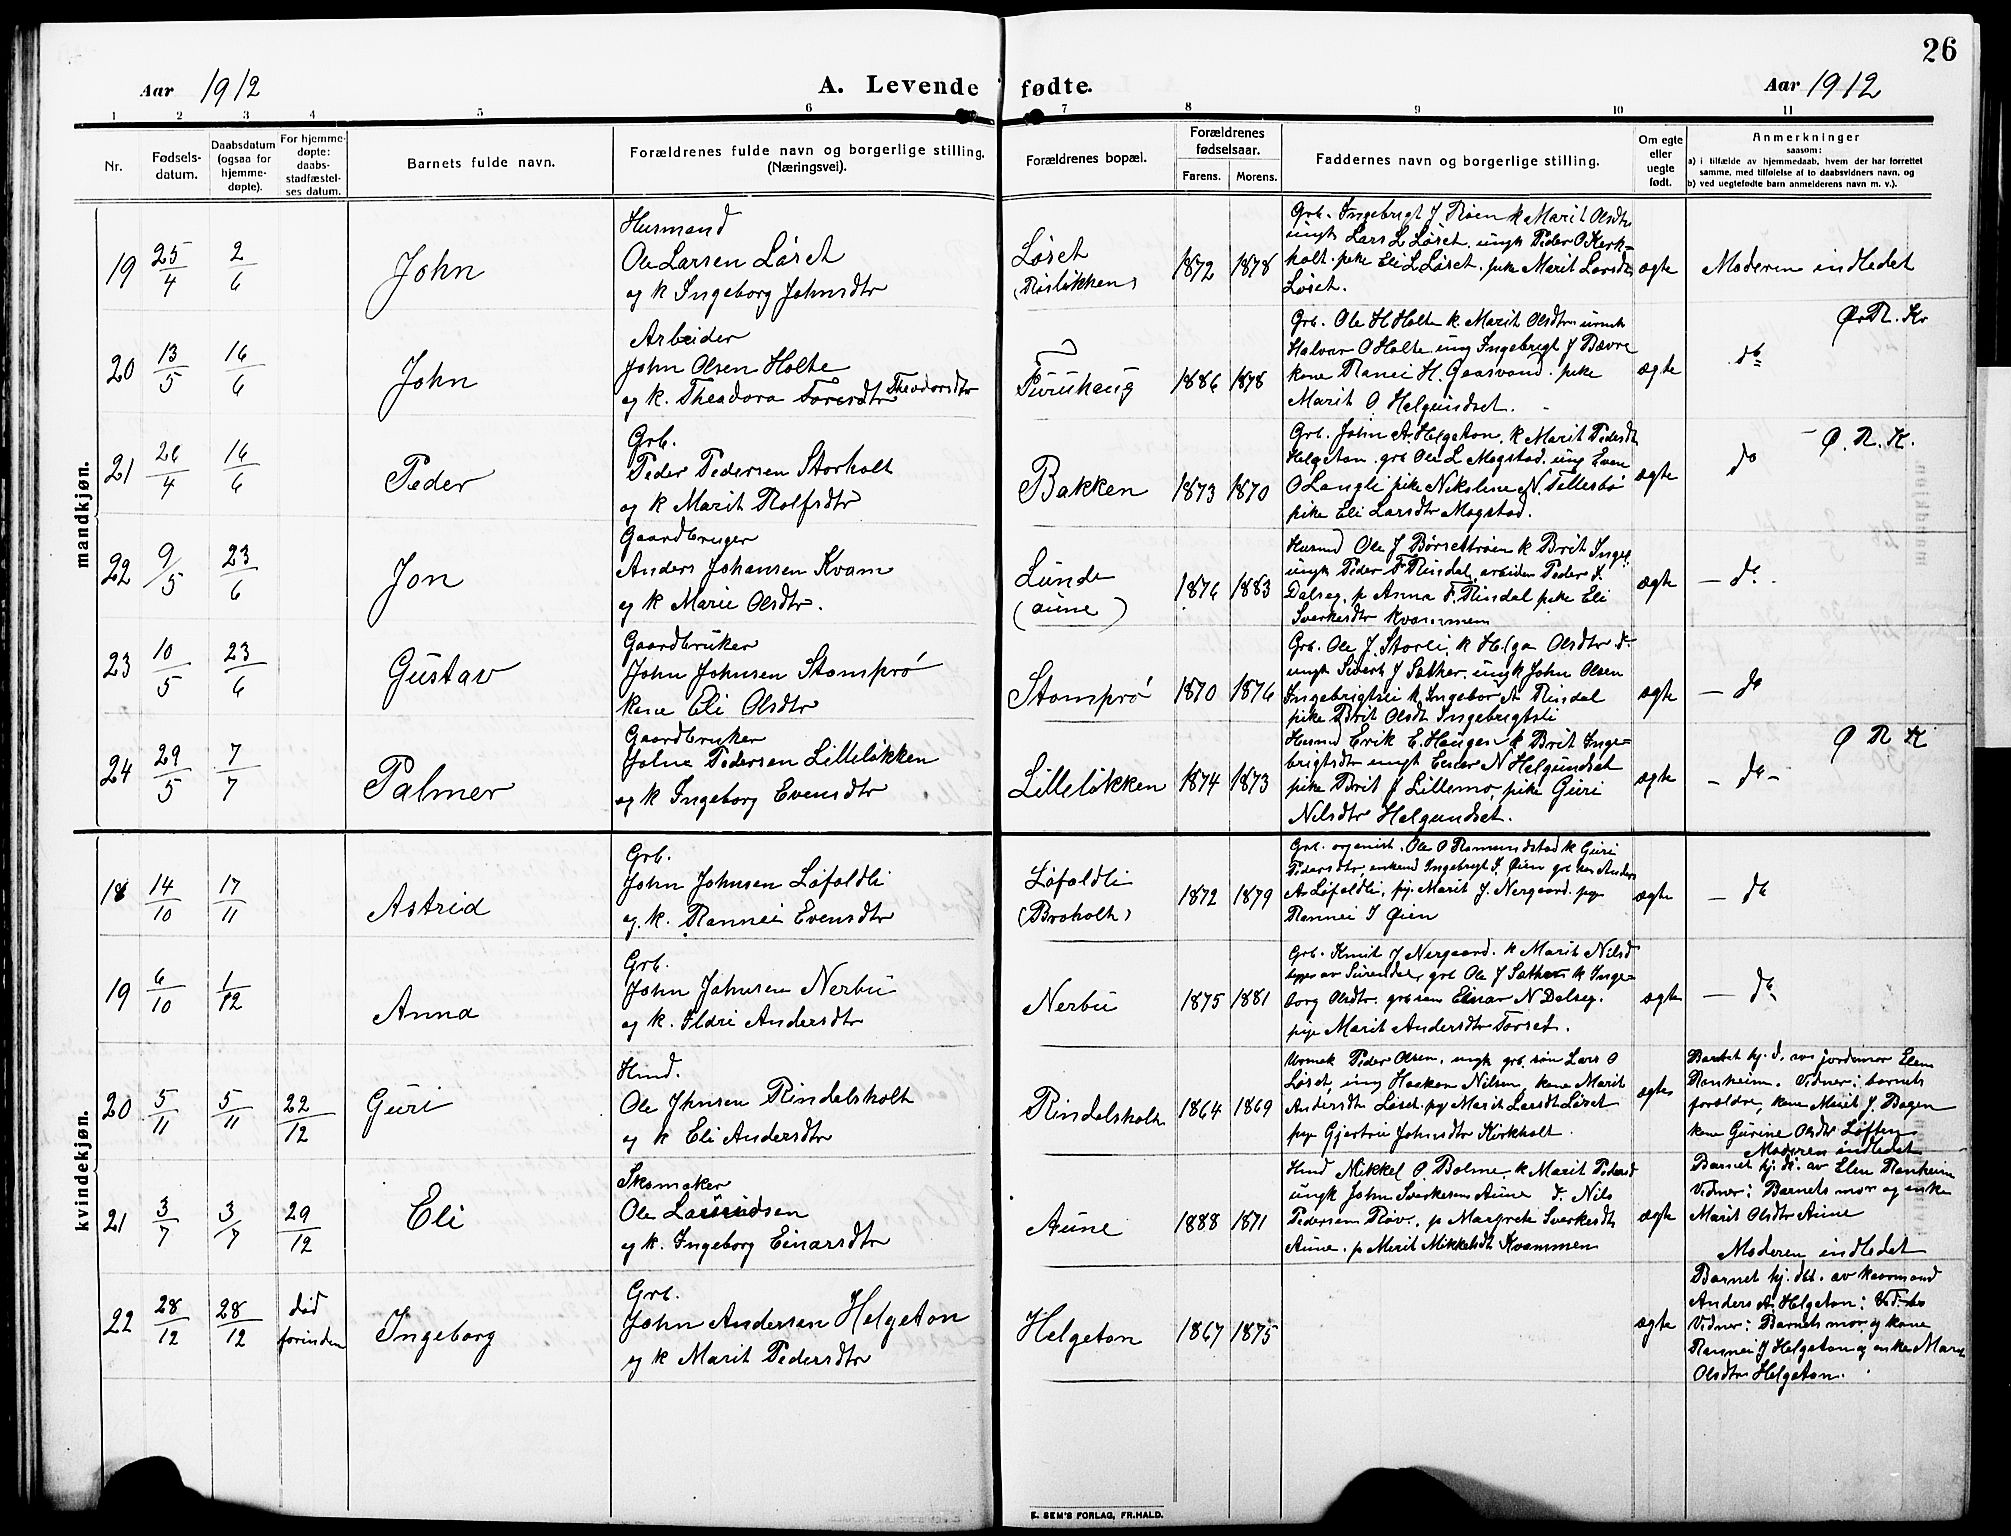 26
Aar 1912
A. Levende fødte.
Aar 1912
1 2 3 4 5 6 7 8 9 10 11
Nr.
Fødselsdatum.
Daabsdatum (ogsaa for hjemmedøpte).
For hjemmedøpte: daabsstadfæstelses datum.
Barnets fulde navn.
Forældrenes fulde navn og borgerlige stilling. (Næringsvei).
Forældrenes bopæl.
Forældrenes fødselsaar.
Farens. Morens.
Faddernes navn og borgerlige stilling.
Om egte eller uegte født.
Anmerkninger
saasom:
a) i tilfælde av hjemmedaab, hvem der har forrettet samme, med tilføielse af to daabsvidners navn, og
b) ved uegtefødte barn anmelderens navn m. v.).
mandkjøn.
19 25/4 2/6 John
Husmand
Ole Larsen Løset
og k Ingeborg Johnsdtr
Løset
1872 1878
Grb. Ingebrigt J Røen k Marit Olsdtr
ungk Lars L Løset. ungk Peder O Kirk-
holt. pike Eli L Løset. pike Marit Larsdtr
Løset.
ægte
Moderen indledet
20 13/5 16/6 John
Arbeider
John Olsen Holte
og k. Theodora Theodorsdtr
Furuhaug
1886 1878
Grb. Ole H Holte k. Marit Olsdtr
Halvar O Holte. ung Ingebrigt J Bævre
kone Ranei H. Gaasvand. pike
Marit O Helgundset.
ægte
do
Ø. R. K.
21 26/4 16/6 Peder
Grb.
Peder Pedersen Storholt
og k Marit Rolfsdtr
Bakken
1873 1870
Grb. John A. Helgeton. k Marit Pedersdtr
Helgeton. grb Ole L Mogstad. ung Even
O Langli pike Nikoline N. Tellesbø
pike Eli Larsdtr Mogstad.
ægte
do
Ø. R. K.
22 9/5 23/6 Jon
Gaardbruger
Anders Johansen Kvam
og k Marie Olsdtr.
Lunde
(Aune)
1876 1883
Husmd Ole J Børsetrøen k Brit Inge
ungk Peder F Rindal, arbeider Peder
Dalseg. p Anna F. Rindal pike Eli
Sverkesdtr Kvammen
ægte
— do
23 10/5 23/6 Gustav
Gaardbruker
John Johnsen Stomprø
kone Eli Olsdtr
Stomprø
1870 1876
Grb. Ole J. Storli, k Helga Olsdtr
ungk Sivert J Sæther. ungk John Olsen
Ingebrigtsli k Ingebor A Rindal
pike Brit Olsdt Ingebrigtsli
ægte
— do
24 29/5 7/7 Palmer
Gaardbruker
Johne Pedersen Lilleløkken
og k Ingeborg Evensdtr
Lilleløkken
1874 1873
Husmd Erik E. Haugen k Brit Inge-
brigtsdtr ungk Einar N Helgundset
pike Brit J Lillemo, pike Guri
Nilsdtr Helgundset.
ægte
— do —
Ø R K
kvindekjøn.
18 14/10 17/11 Astrid
Grb.
John Johnsen Løfaldli
og. k. Rannei Evensdtr
Løfaldli
(Broholt)
1872 1879
Grb. organist. Ole O Romundstad k Guri
Pedersdtr, enkemd Ingebrigt I. Øien Anders
A Løfaldli, pig. Marit J. Nergaard. pige
Rannei I Øien
ægte
— do
19 6/10 1/12 Anna
Grb.
John Johnsen Nerbu
og k. Ildri Andersdtr
Nerbu
1875 1881
Grb. Knut J Nergaard. k Marit Nilsd
av Surendal, grb Ole J Sæther k Inge-
borg Olsdtr. grb søn Einar N Dalseg.
pige Marit Andersdtr Torset.
ægte
— do
20 5/11 5/11 22/12 Guri
Hmd.
Ole Jhnsen Rindalsholt
og k Eli Andersdtr
Rindalsholt
1864 1869
Peder Olsen, ungk grb. søn Lars O
Løset, ung Haaken Nilsen, kone Marit
Andersdtr Løset. pg Marit Larsdt Løset
pige Gjertru Johnsdtr Kirkholt.
ægte
Barnet hj. d. av jordemor Elen
Ranheim. Vidner: barnets
forældre, kone Marit J. Bagen
kone Gurine Olsdtr Løften
Moderen indledet
21 3/7 3/7 29/12 Eli
Skomaker
Ole Lauridsen
og k. Ingeborg Einarsdtr
Aune
1888 1871
Hmd Mikkel O. Bolme, k Marit Pedersd
ungk John Sverkesen Aune d. Nils
Pedersen Røv. p Margrete Sverkesdt
Aune. p Marit Mikkelsdt Kvammen
ægte
Barnet hj. d. av Elen Ranheim
Vidner: Barnets mor og enke
Marit Olsdtr Aune
Moderen indledet
22 28/12 28/12 død forinden Ingeborg
Grb.
John Andersen Helgeton
og k Marit Pedersdtr
Helgeton
1867 1875
ægte
Barnet hj. dbt. av kaarmand
Anders A. Helgeton:
Vidner: Barnets mor og kone
Rannei J Helgeton og enke Marit
Olsdtr Helgeton.
E. SEM'S FORLAG, FR.HALD.